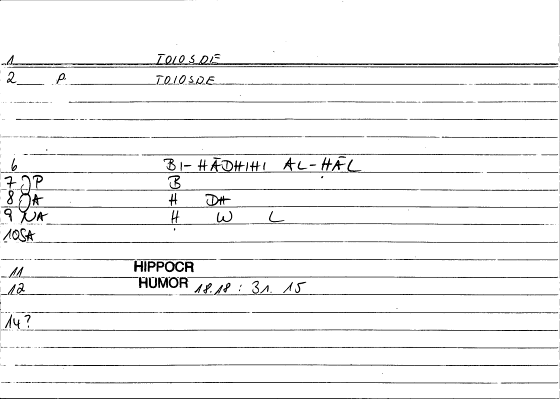 1 TOIOSDE
2 P TOIOSDE
6 BI-HĀDHIHI AL-ḤĀL
7 P B
8 A H DH
9 NA H W L
10 SA
11 HIPPOCR
12 HUMOR 18.18 : 31. 15
14?